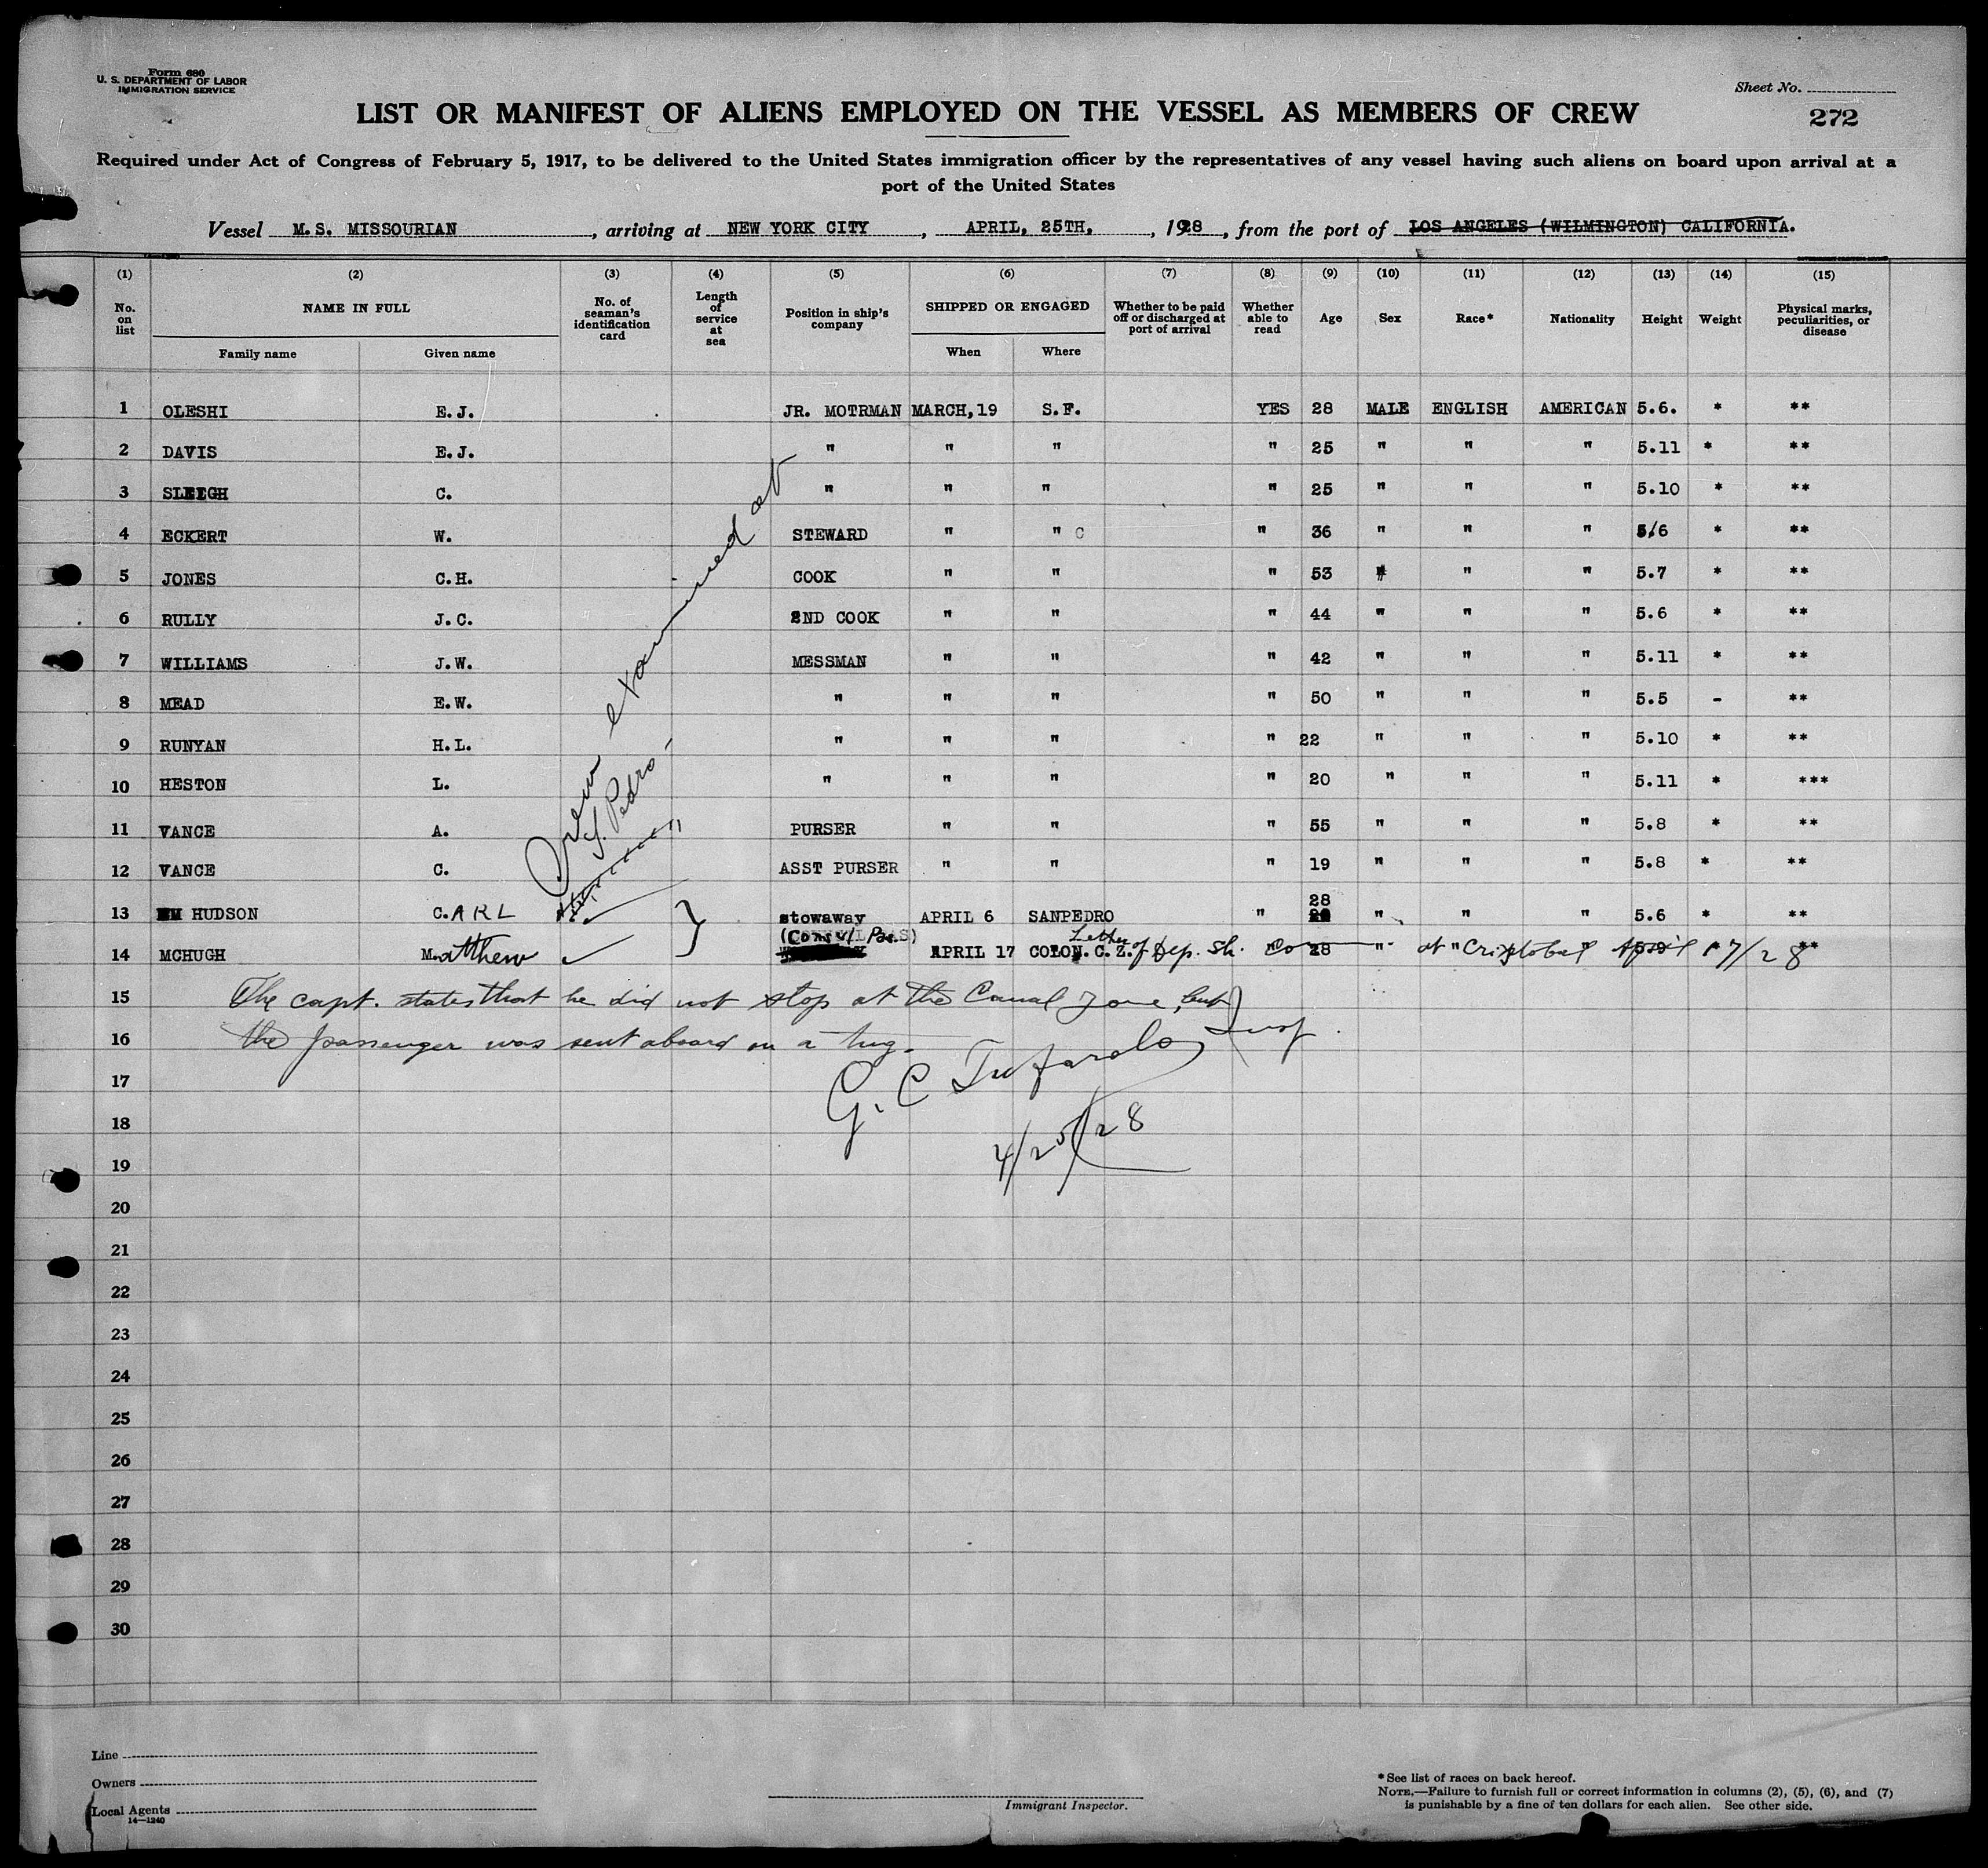 Form 680
U. S. DEPARTMENT OF LABOR
IMMIGRATION SERVICE
Sheet No.
272
LIST OR MANIFEST OF ALIENS EMPLOYED ON THE VESSEL AS MEMBERS OF CREW
Required under Act of Congress of February 5, 1917, to be delivered to the United States immigration officer by the representatives of any vessel having such aliens on board upon arrival at a
port of the United States
Vessel M.S. MISSOURIAN, arriving at NEW YORK CITY, APRIL, 25TH, 1928, from the port of LOS ANGELES (WILMINGTON) CALIFORNIA.
(1) (2) (3) (4) (5) (6) (7) (8) (9) (10) (11) (12) (13) (14) (15)
No. on list NAME IN FULL No. of seaman's identification card Length of service at sea Position in ship's company SHIPPED OR ENGAGED Whether to be paid off or discharged at port of arrival Whether able to read Age Sex Race* Nationality Height Weight Physical marks, peculiarities, or disease
Family name Given name When Where
1 OLESHI E.J. JR. MOTRMAN MARCH,19 S.F. YES 28 MALE ENGLISH AMERICAN 5.6. * **
2 DAVIS E.J. " " " " 25 " " " 5.11 * **
3 SLEIGH C. " " " " 25 " " " 5.10 * **
4 ECKERT W. STEWARD " " C " 36 " " " 5/6 * **
5 JONES C.H. COOK " " " 53 " " " 5.7 * **
6 RULLY J.C. 2ND COOK " " " 44 " " " 5.6 * **
7 WILLIAMS J.W. MESSMAN " " " 42 " " " 5.11 * **
8 MEAD E.W. " " " " 50 " " " 5.5 - **
9 RUNYAN H.L. " " " " 22 " " " 5.10 * **
10 HESTON L. " " " " 20 " " " 5.11 * ***
11 VANCE A. PURSER " " " 55 " " " 5.8 * **
12 VANCE C. ASST PURSER " " " 19 " " " 5.8 * **
Crew examined at
S. Pedro
13 HUDSON C.ARL stowaway APRIL 6 SANPEDRO " 28 " " " 5.6 * **
14 MCHUGH Matthew (Consul Pas.) APRIL 17 COLON.C.Z. Letter of Dep. Sh. Co 28 " at "Cristobal April 17/28 **
15 The capt. states that he did not stop at the Canal Zone, but
16 the passenger was sent aboard on a tug.
Insp.
17 G. C.
18 4/25/28
19
20
21
22
23
24
25
26
27
28
29
30
Line
Owners
Local Agents
14—1240
Immigrant Inspector.
* See list of races on back hereof.
NOTE.—Failure to furnish full or correct information in columns (2), (5), (6), and (7)
is punishable by a fine of ten dollars for each alien. See other side.